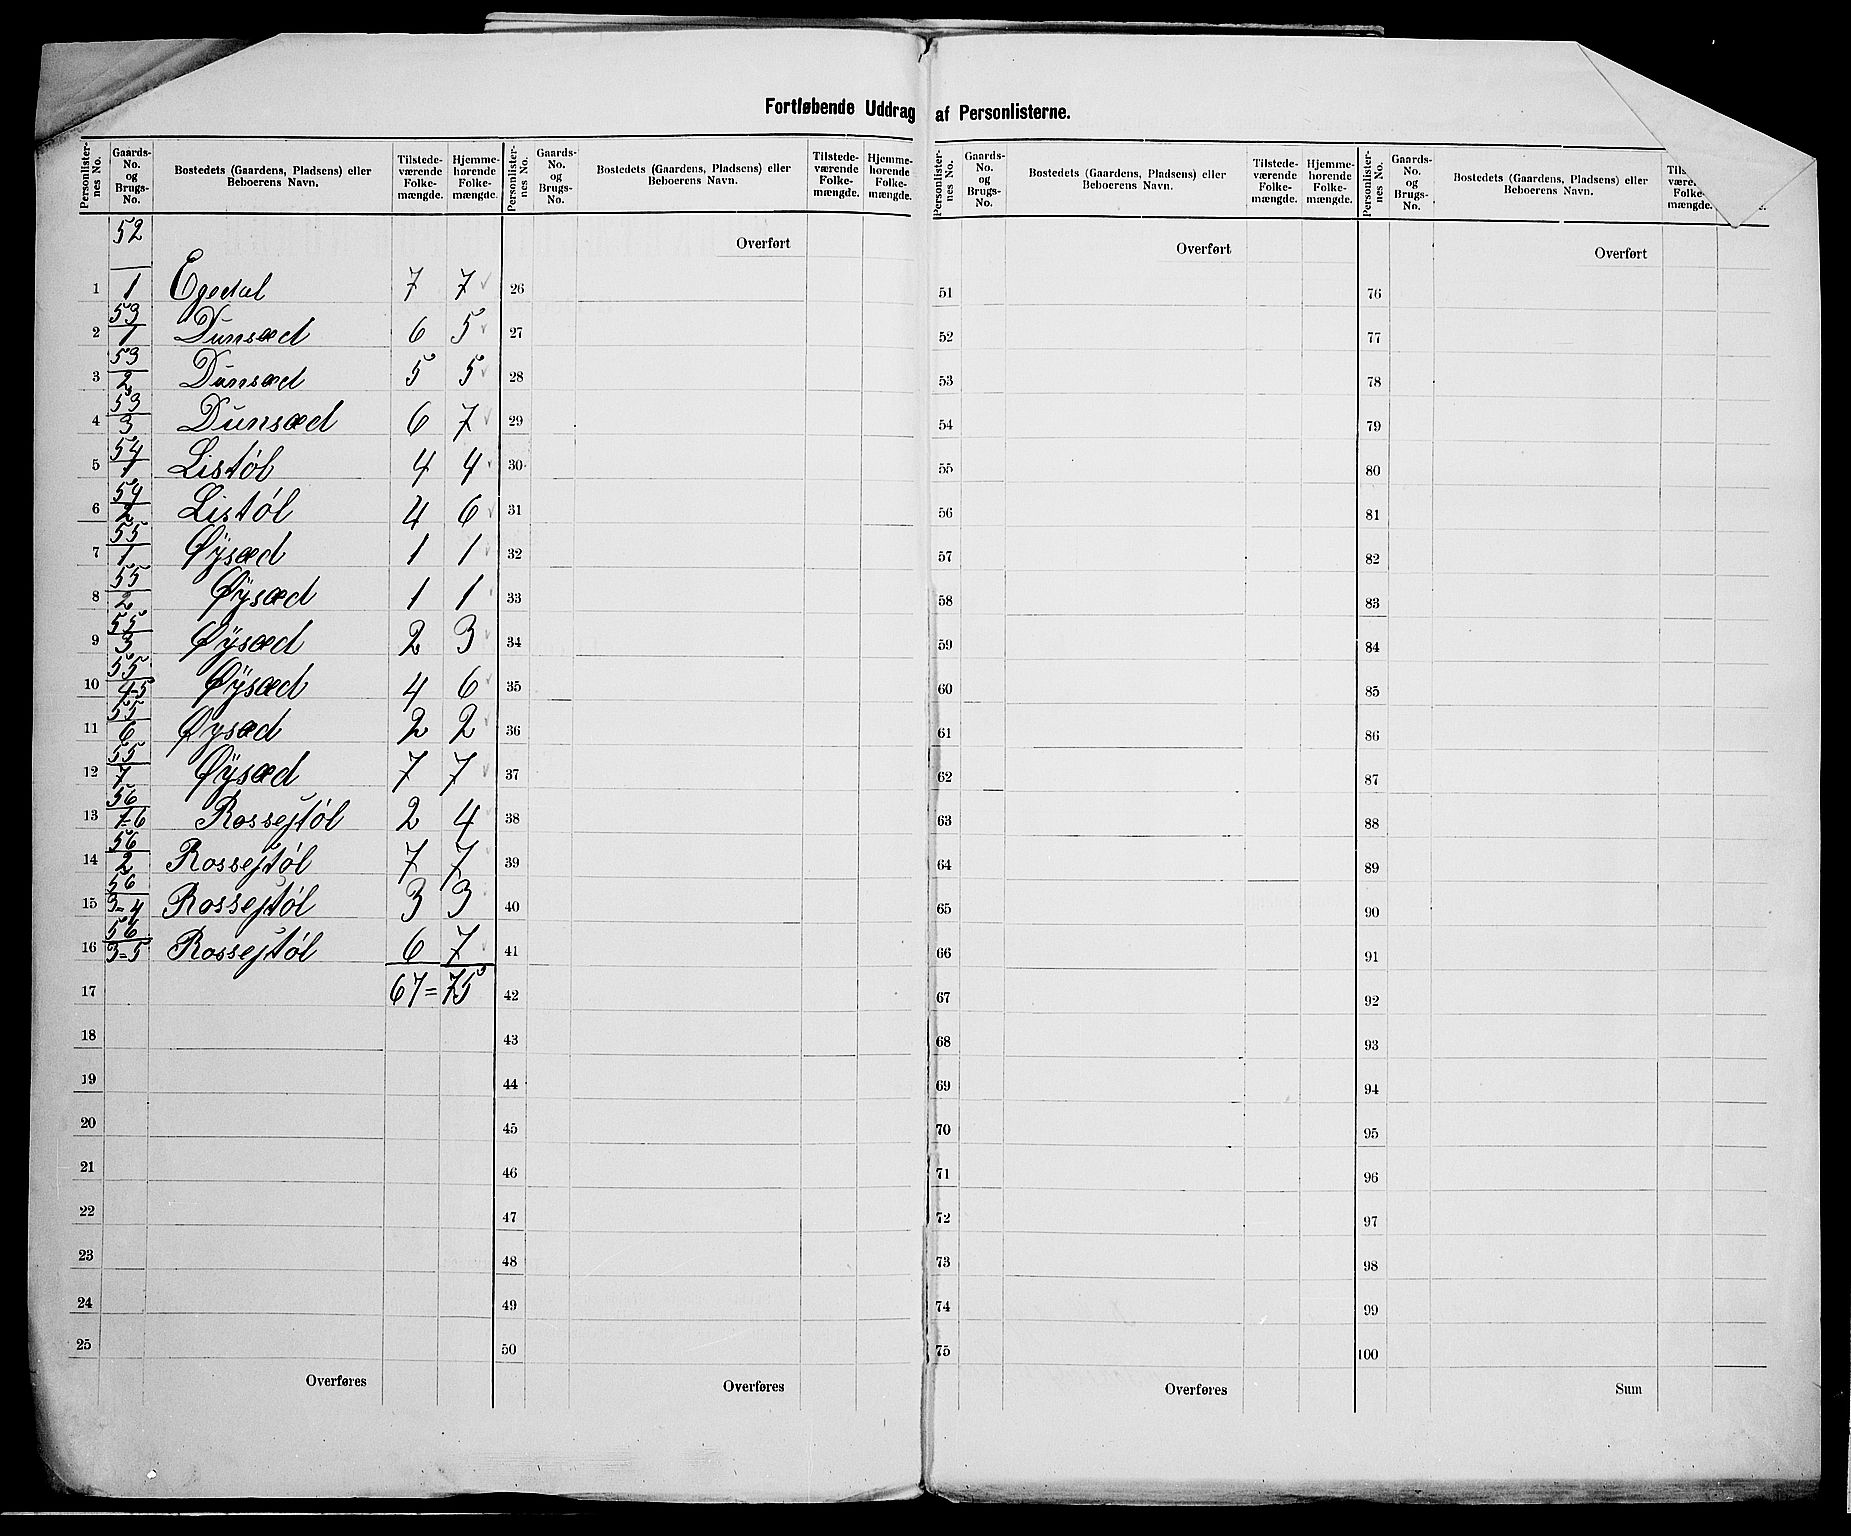 Fortløbende Uddrag af Personlisterne.
Personlister-nes No. | Gaards-No. og Brugs-No. | Bostedets (Gaardens, Pladsens) eller Beboerens Navn. | Tilstede-værende Folke-mængde. | Hjemme-hørende Folke-mængde.
1 52/1 Egedal 7 7
2 53/1 Dunsæd 6 5
3 53/2 Dunsæd 5 5
4 53/3 Dunsæd 6 7
5 54/1 Listøl 4 4
6 54/2 Listøl 4 6
7 55/1 Øysæd 1 1
8 55/2 Øysæd 1 1
9 55/3 Øysæd 2 3
10 55/4-5 Øysæd 4 6
11 55/6 Øysæd 2 2
12 55/7 Øysæd 7 7
13 56/1-6 Rossejtøl 2 4
14 56/2 Rossejtøl 7 7
15 56/3=4 Rossejtøl 3 3
16 56/3=5 Rossejtøl 6 7
17 67=75
18
19
20
21
22
23
24
25
Overføres
Personlister-nes No. | Gaards-No. og Brugs-No. | Bostedets (Gaardens, Pladsens) eller Beboerens Navn. | Tilstede-værende Folke-mængde. | Hjemme-hørende Folke-mængde.
Overført
26
27
28
29
30
31
32
33
34
35
36
37
38
39
40
41
42
43
44
45
46
47
48
49
50
Overføres
Personlister-nes No. | Gaards-No. og Brugs-No. | Bostedets (Gaardens, Pladsens) eller Beboerens Navn. | Tilstede-værende Folke-mængde. | Hjemme-hørende Folke-mængde.
Overført
51
52
53
54
55
56
57
58
59
60
61
62
63
64
65
66
67
68
69
70
71
72
73
74
75
Overføres
Personlister-nes No. | Gaards-No. og Brugs-No. | Bostedets (Gaardens, Pladsens) eller Beboerens Navn. | Folke-mængde.
Overført
76
77
78
79
80
81
82
83
84
85
86
87
88
89
90
91
92
93
94
95
96
97
98
99
100
Sum